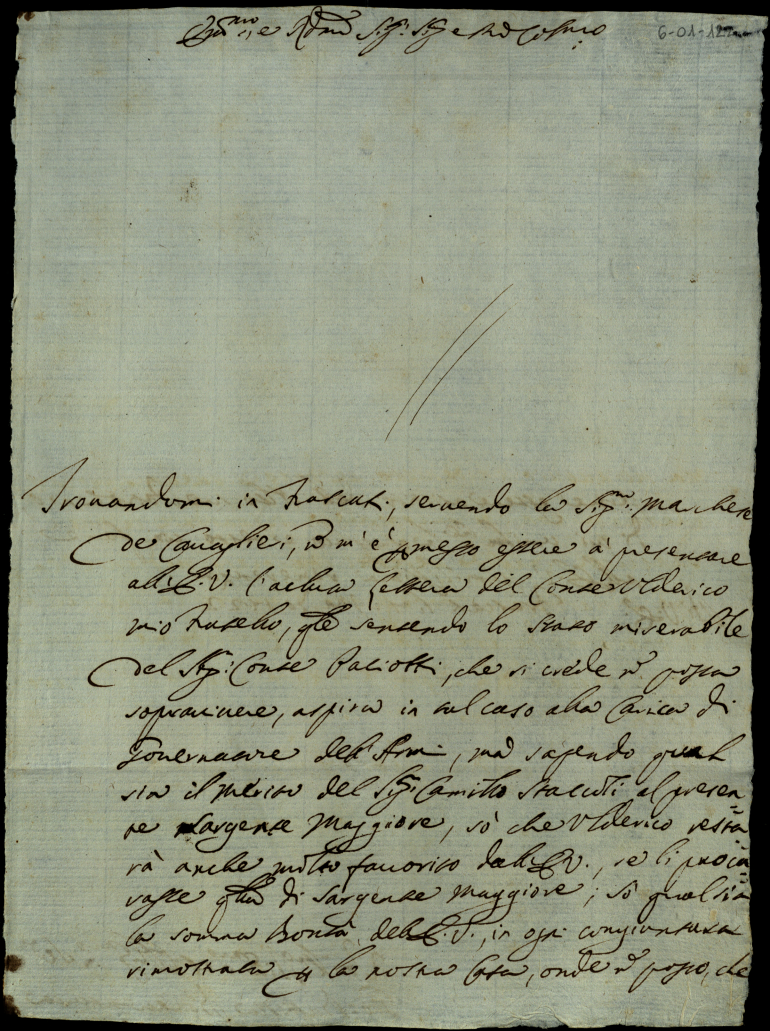 Em.mo, e R.mo Sig.r Sig.r e P.ne Col.mo
6-01-122
Trovandomi in Frascati, seruendo la Sig.ra Marchese
de Cavaglieri, n m'è pmesso essere à presentare
all'E.V. l'aclusa lettera del Conte Vlderico
mio Fratello, qle sentendo lo stato miserabile
del Sig.r Conte Paciotti, che si crede n possa
sopraviuere, aspira in tal caso alla Carica di
Gouernatore dell'Armi, mà sapendo qual
sia il merito del Sig.r Camillo Staccoli al presen=
te Sargente Maggiore, sò che Vlderico resta=
rà anche molto fauorito dall'E.V., se li procu=
rasse qlla di Sargente Maggiore; sò qual sia
la somma Bontà dell'E.V., in ogni congiuntura
rimostrata p la nostra Casa, onde n posso, che